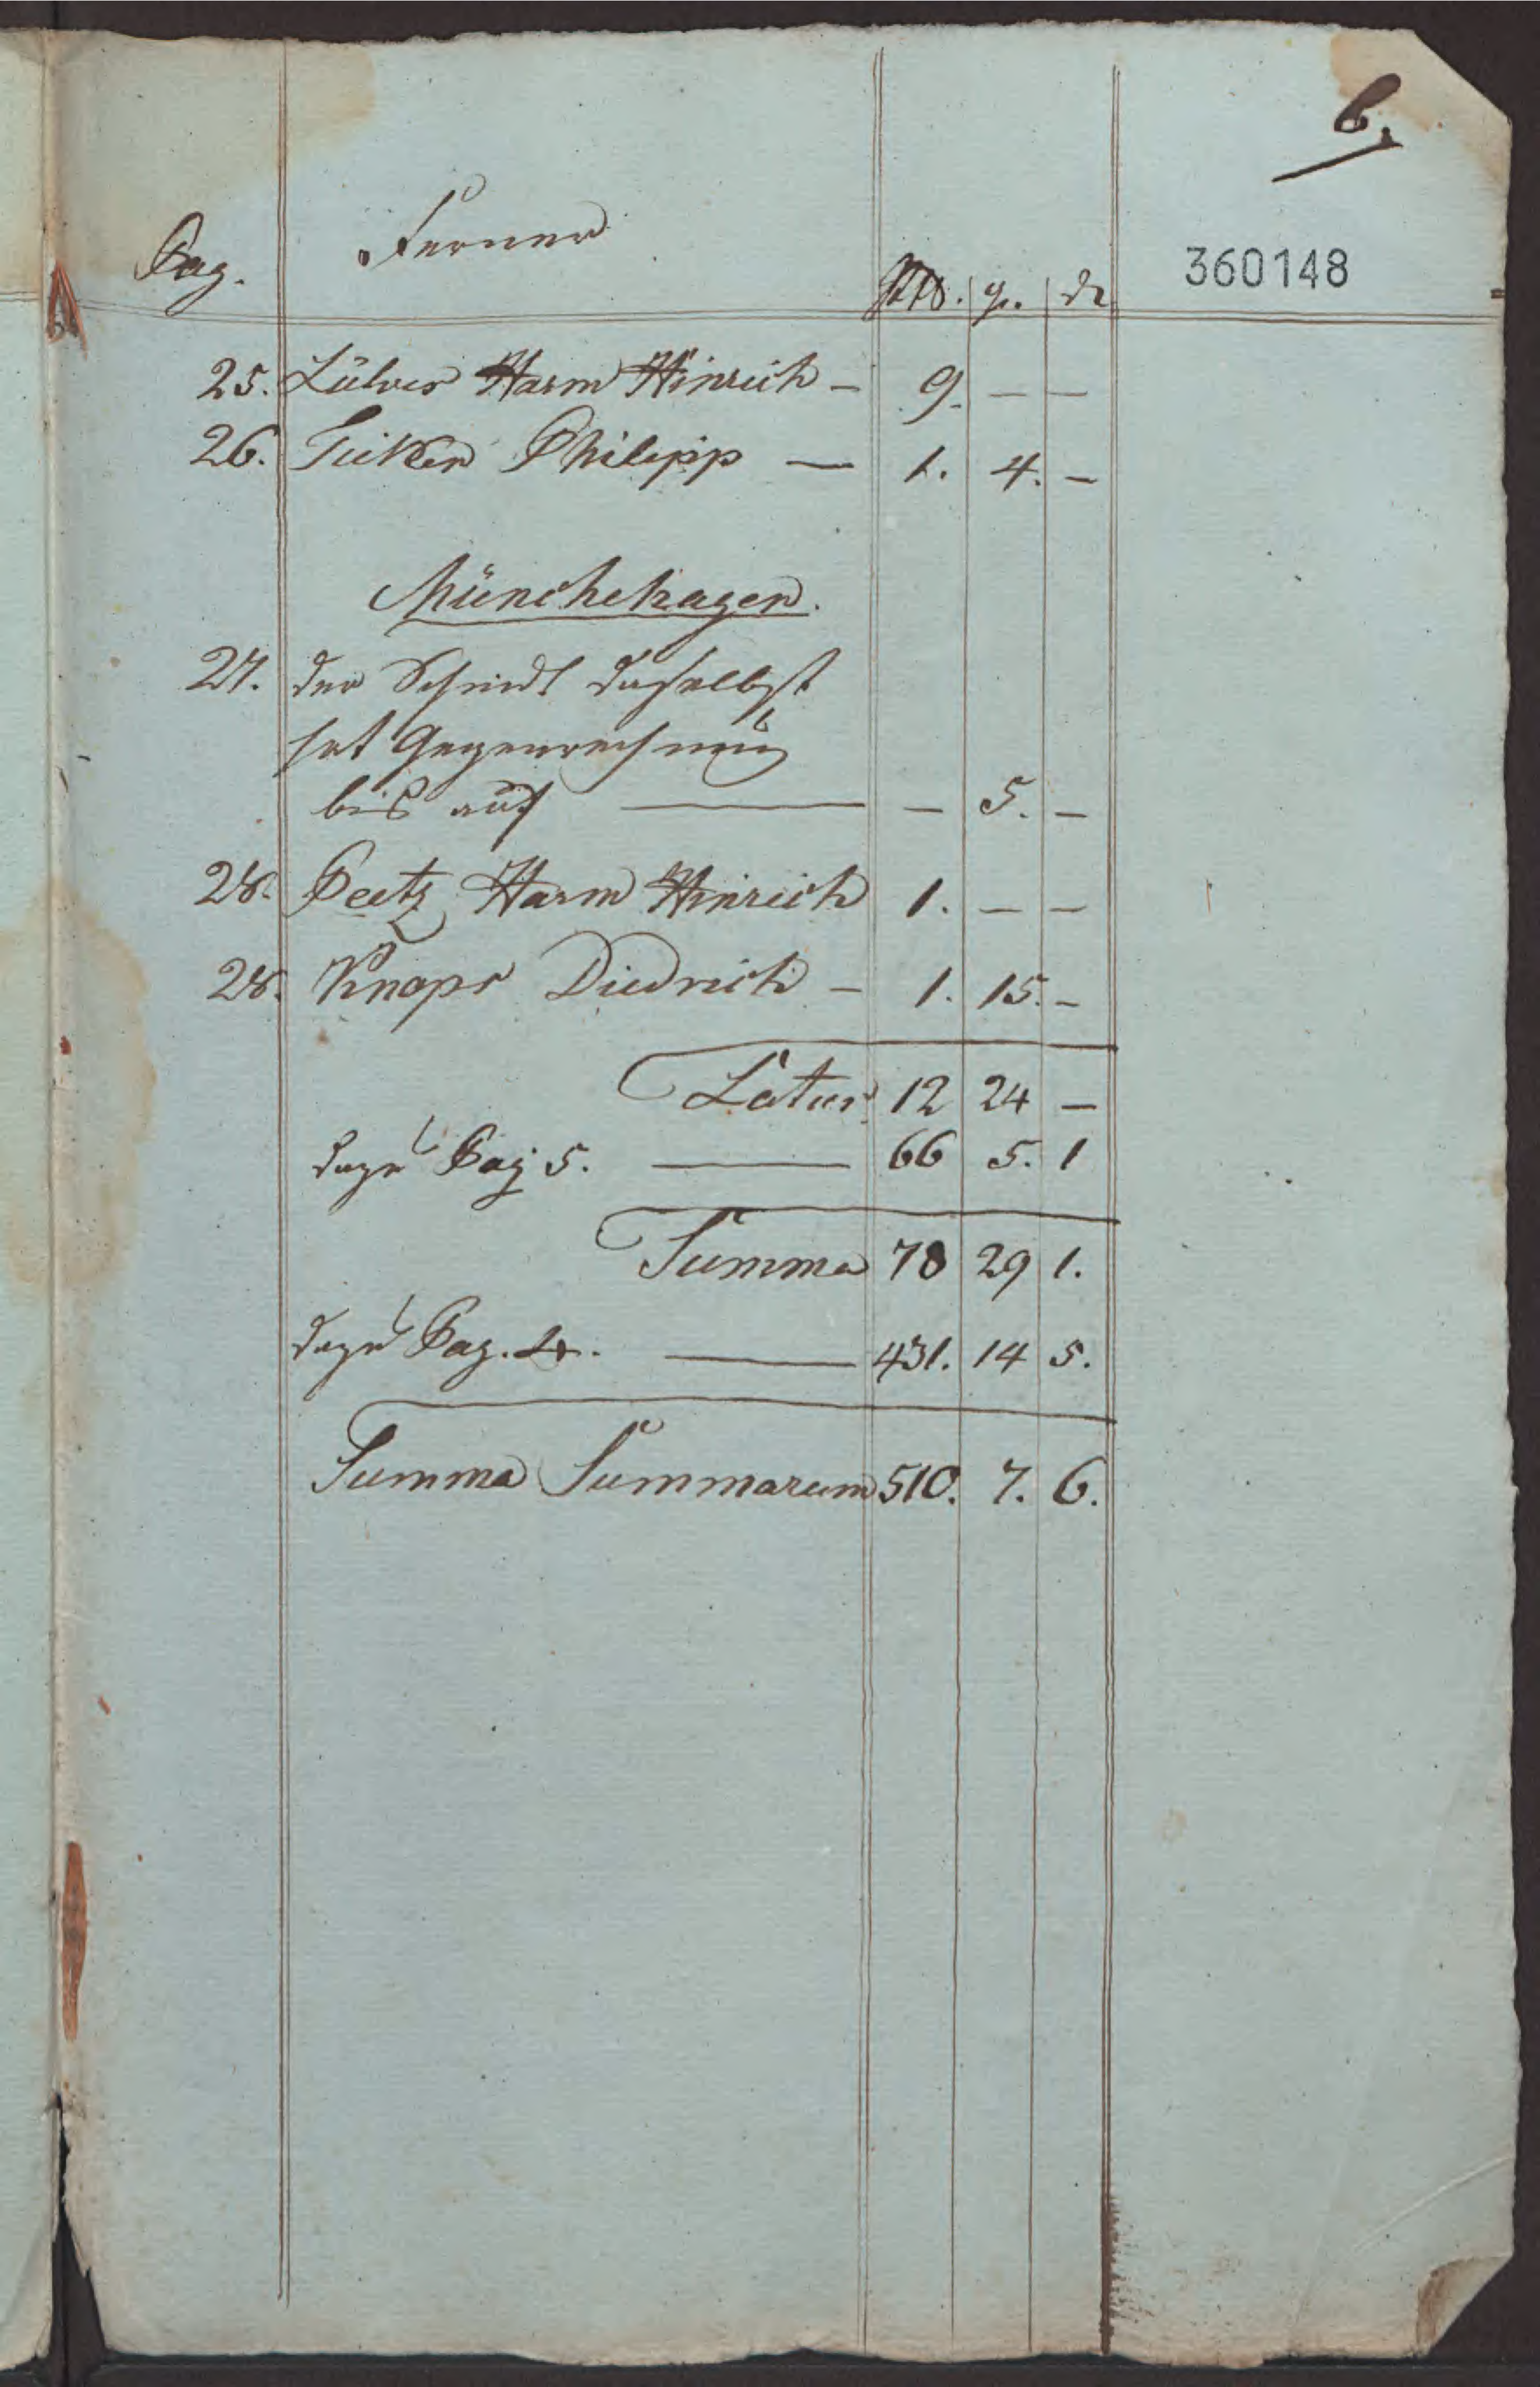 6.
Pag. Ferner
Rth. gr. d
360148
25. Lülves Harm Hinrich – 9. – –
26. Tuiker Philipp — 1. 4. –
Münchehagen.
27. der Schmidt daselbst
hat Gegenrechnung
bis auf — – 5. –
28. Peetz Harm Hinrich 1. – –
28. Knops Diedrich – 1. 15. –
Latus 12 24 –
dazu Pag 5. — 66 5. 1
Summa 78 29 1.
dazu Pag. 4. — 431. 14 5.
Summa Summarum 510. 7. 6.